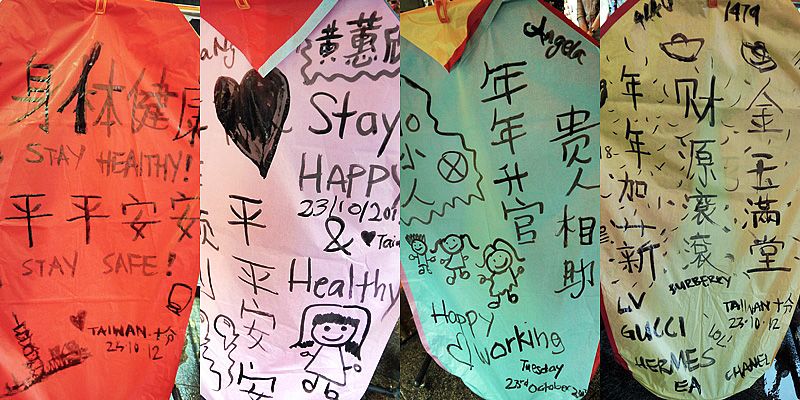 身体健康
STAY HEALTHY!
平平安安
STAY SAFE!
TAIWAN 十分
23.10.12
aNg
黄蕙欣
Stay
HAPPY
23/10/201
& Tai
Healthy
平平安安
Angela
小人
年年升官
贵人相助
Happy
Working
Tuesday
23rd October
年年加薪
财源滚滚
金玉滿堂
BURBERRY
LV
GUCCI
LOL
HERMES
EA
TAIWAN 十分
23·10·12
CHANEL